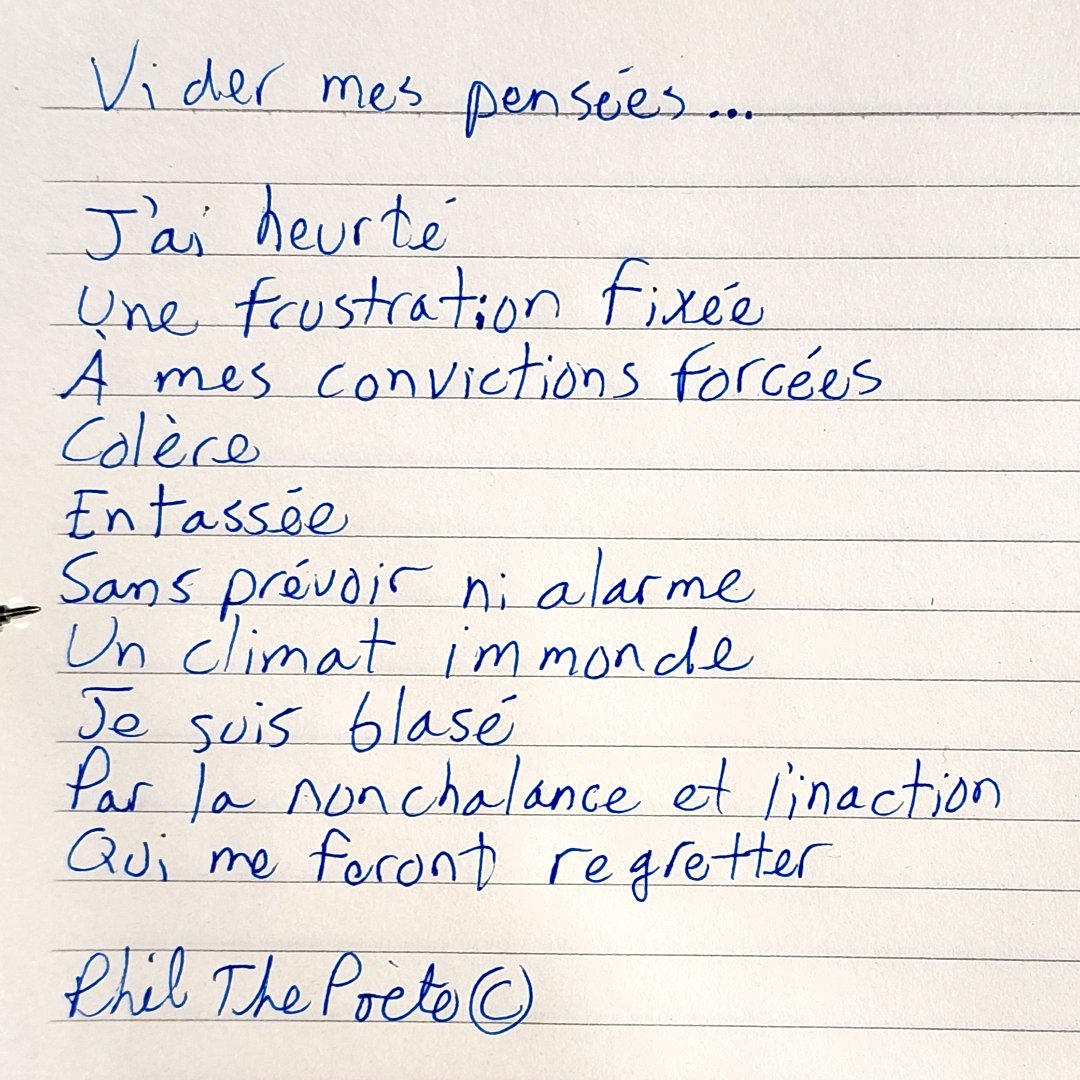 Vider mes pensées...
J'ai heurté
Une frustration fixée
À mes convictions forcées
Colère
Entassée
Sans prévoir ni alarme
Un climat immonde
Je suis blasé
Par la nonchalance et l'inaction
Qui me feront regretter
Phil The Poète ©